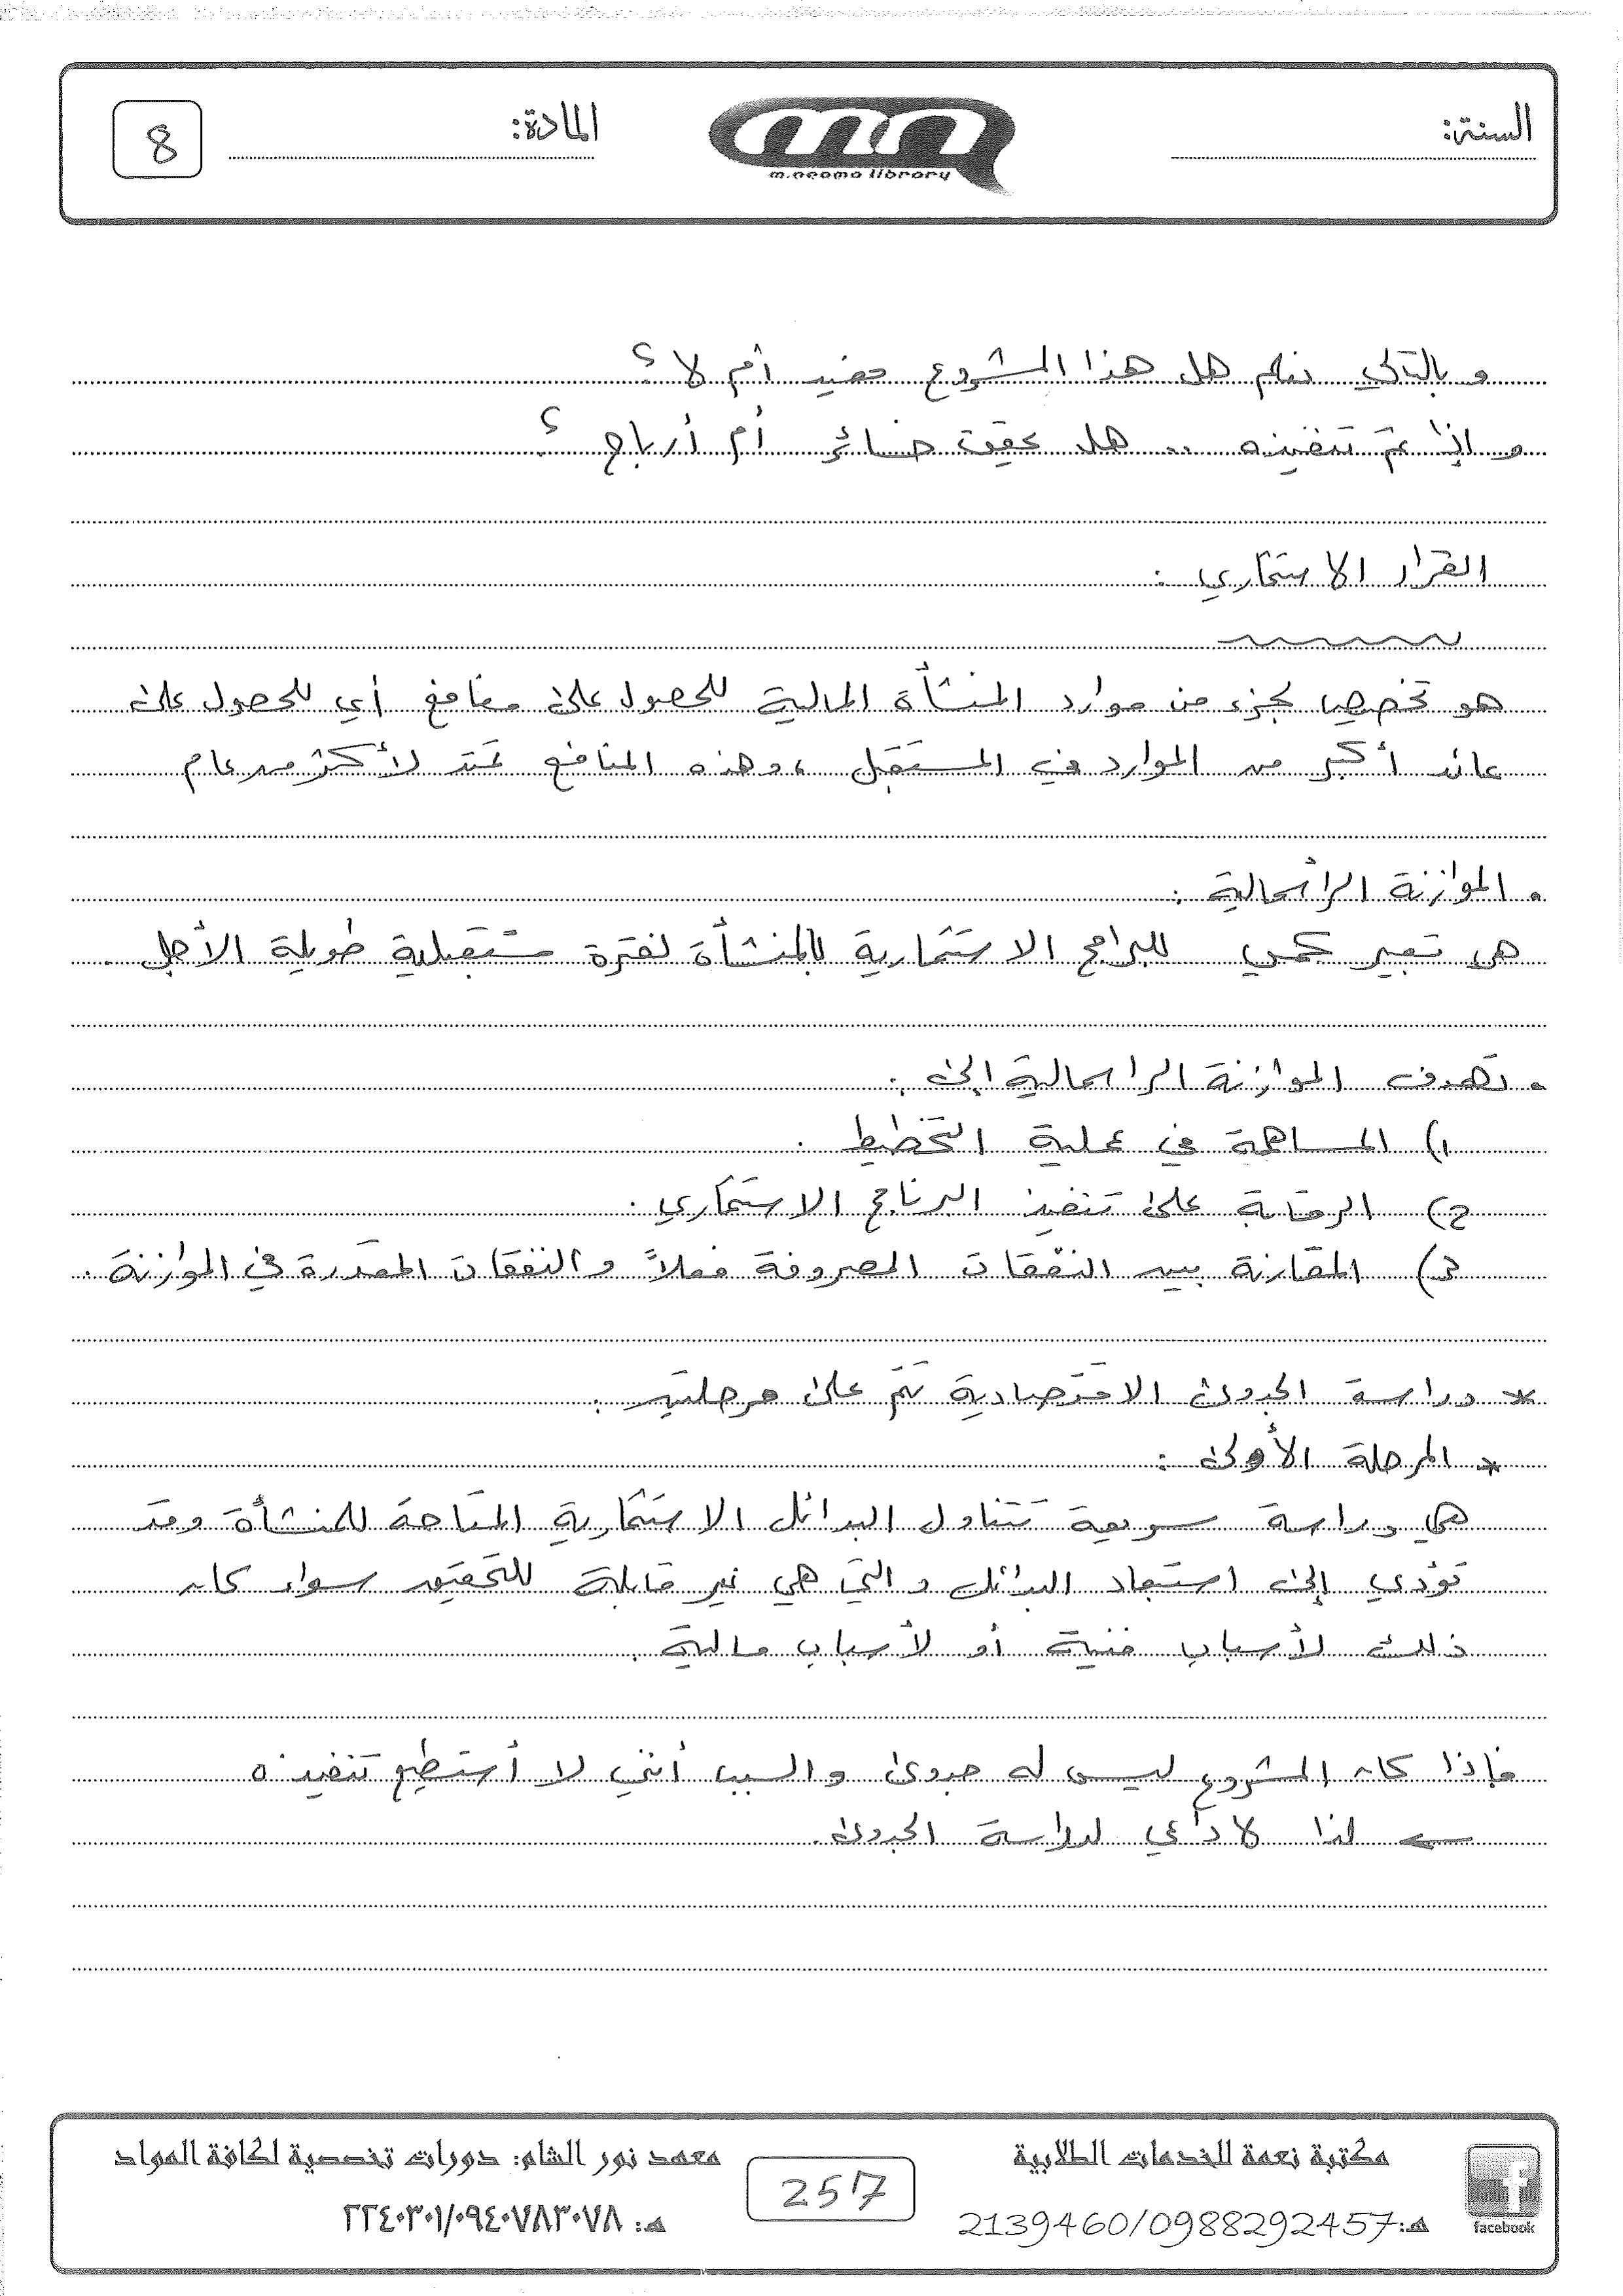 السنة:
m.neama library
المادة:
8
و بالتالي نعلم هل هذا المشروع مفيد أم لا ؟
و إذا تمّ تنفيذه .. هل يحقق خسائر أم أرباح ؟
القرار الاستثماري :
هو تخصيص لجزء من موارد المنشأة المالية للحصول على منافع أي للحصول على
عائد أكبر من الموارد في المستقبل ، وهذه المنافع تمتد لأكثر من عام
• الموازنة الرأسمالية :
هي تعبير كمي للبرامج الاستثمارية بالمنشأة لفترة مستقبلية طويلة الأجل .
• تهدف الموازنة الراسمالية إلى :
1) المساهمة في عملية التخطيط .
2) الرقابة على تنفيذ البرنامج الاستثماري .
3) المقارنة بين النفقات المصروفة فعلاً والنفقات المقدرة في الموازنة .
* دراسة الجدوى الاقتصادية تتم على مرحلتين :
* المرحلة الأولى :
هي دراسة سريعة تتناول البدائل الاستثمارية المتاحة للمنشأة وقد
تؤدي إلى استبعاد البدائل والتي هي غير قابلة للتحقيق سواء كان
ذلك لأسباب فنية أو لأسباب مالية .
فإذا كان المشروع ليس له جدوى والسبب أنني لا أستطيع تنفيذه
← لذا لا داعي لدراسة الجدوى .
مكتبة نعمة للخدمات الطلابية
هـ: 2139460/0988292457
facebook
257
معهد نور الشام: دورات تخصصية لكافة المواد
هـ: ٢٢٤٠٣٠١/٠٩٤٠٧٨٣٠٧٨